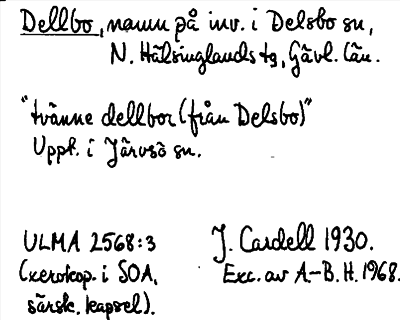 Dellbo, namn på inv. i Delsbo sn,
N. Hälsinglands tg, Gävl. län.
"tvänne dellbor (från Delsbo)"
Uppt. i Järvsö sn.
ULMA 2568:3 J. Cardell 1930.
(xerokop. i SOA, Exc. av A-B. H. 1968.
särsk. kapsel).